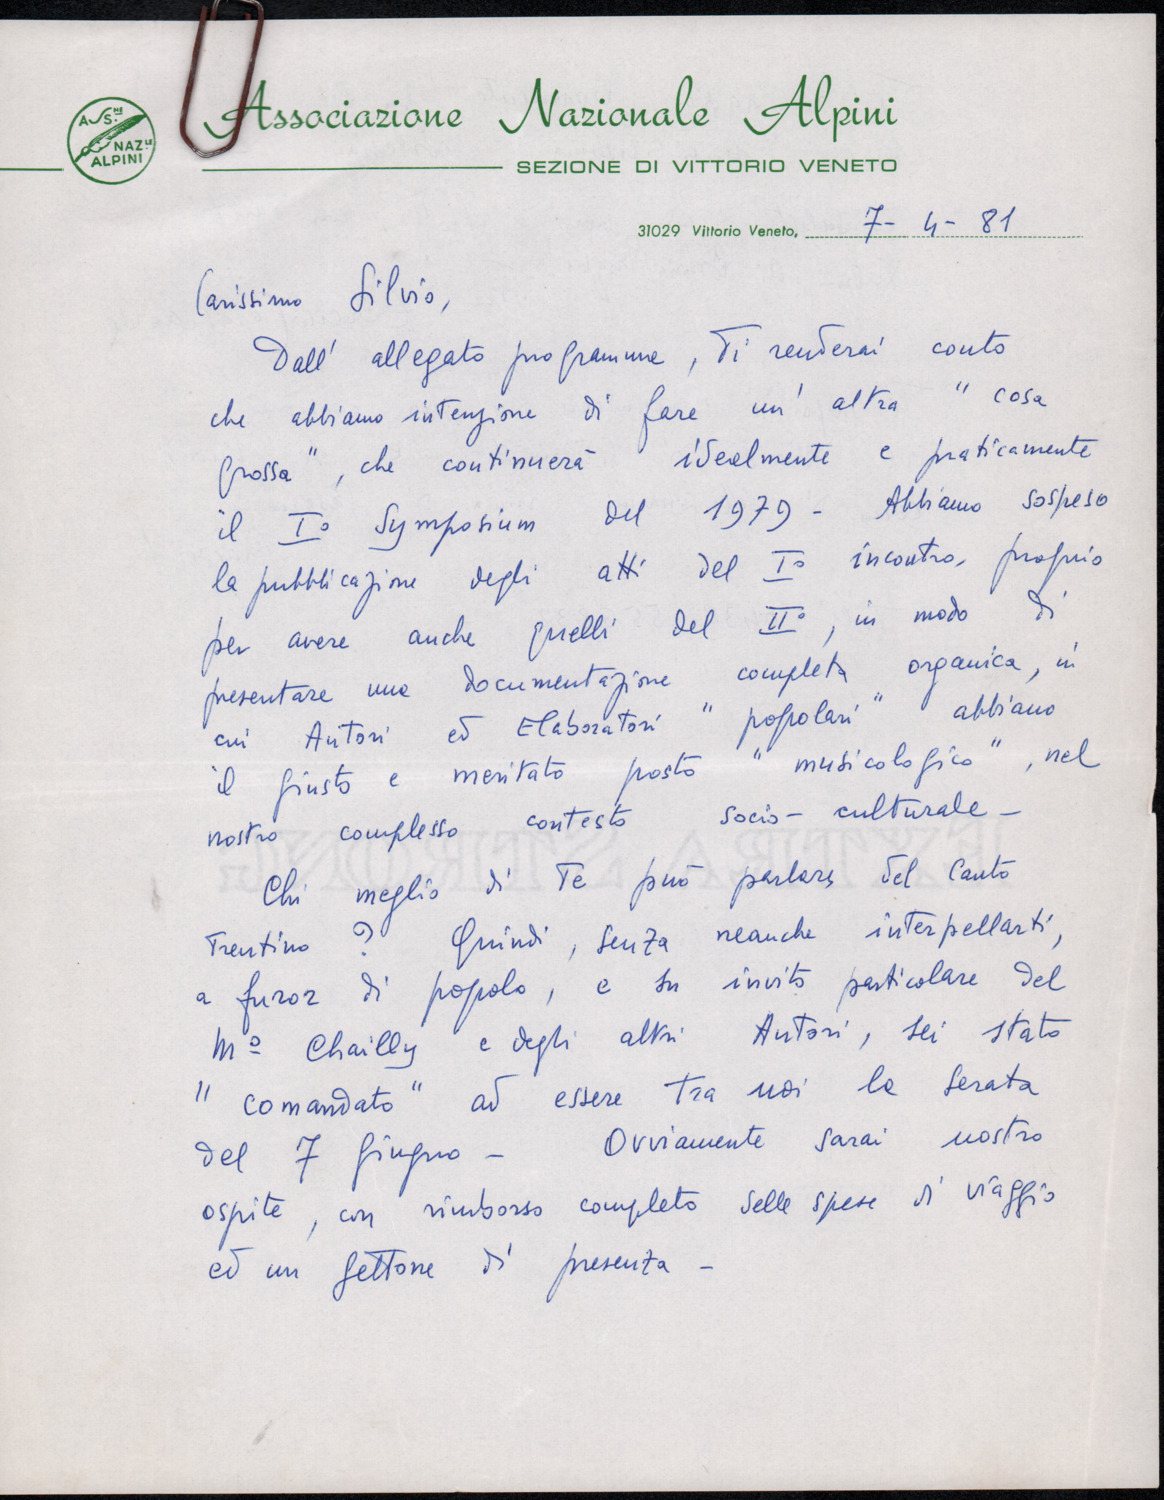 ASS.NE
NAZ.LE
ALPINI
Associazione Nazionale Alpini
SEZIONE DI VITTORIO VENETO
31029 Vittorio Veneto, 7-4-81
Carissimo Silvio,
Dall' allegato programma, Ti renderai conto
che abbiamo intenzione di fare un' altra "cosa
grossa", che continuerà idealmente e praticamente
il I° Symposium del 1979 - Abbiamo sospeso
la pubblicazione degli atti del I° incontro, proprio
per avere anche quelli del II°, in modo di
presentare una documentazione completa organica, in
cui Autori ed Elaboratori "popolari" abbiano
il giusto e meritato posto "musicologico", nel
nostro complesso contesto socio-culturale -
Chi meglio di Te può parlare del Canto
Trentino? Quindi, senza neanche interpellarti,
a furor di popolo, e su invito particolare del
M° Chailly e degli altri Autori, sei stato
"comandato" ad essere tra noi la serata
del 7 giugno - Ovviamente sarai nostro
ospite, con rimborso completo delle spese di viaggio
ed un gettone di presenza -
EXTRA STRONG